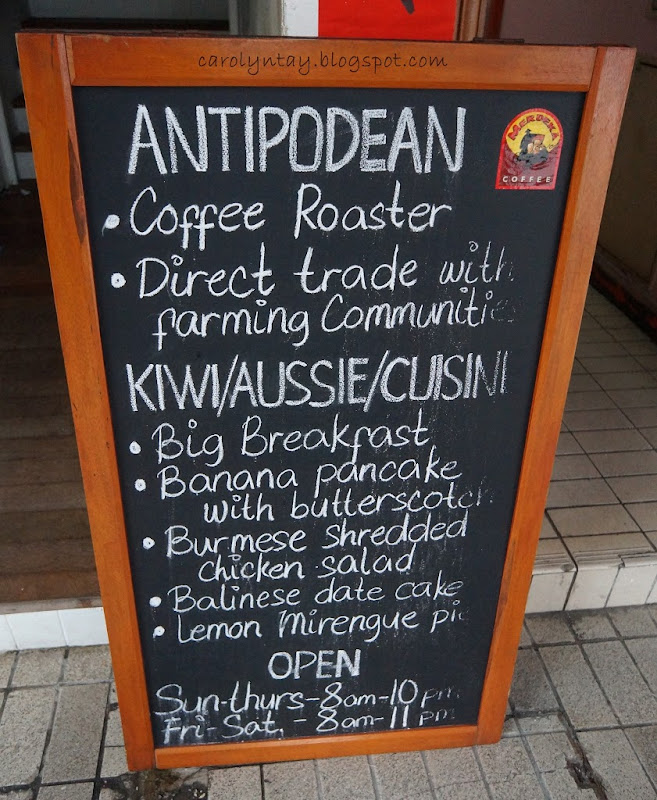 carolyntay.blogspot.com
ANTIPODEAN
MERDEKA
COFFEE
• Coffee Roaster
• Direct trade with
farming Communitie
KIWI/AUSSIE/CUISINE
• Big Breakfast
• Banana pancake
with butterscotch
• Burmese shredded
chicken salad
• Balinese date cake
• Lemon Mirengue pie
OPEN
Sun-thurs-8am-10pm
Fri-Sat. - 8am-11pm